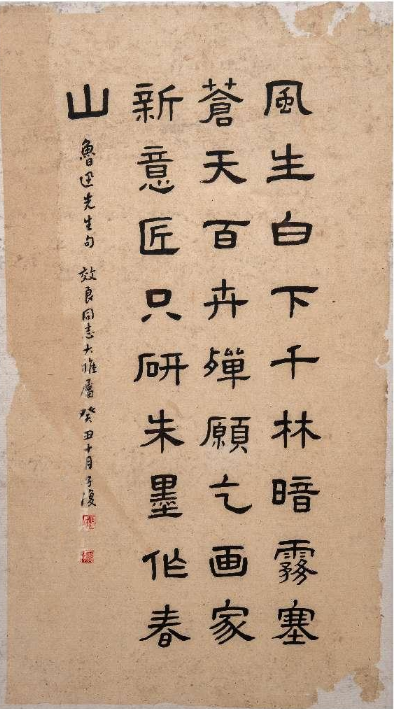 風生白下千林暗霧塞
蒼天百卉殫願乞画家
新意匠只研朱墨作春
山
魯迅先生句 效良同志大雅屬 癸丑十月子